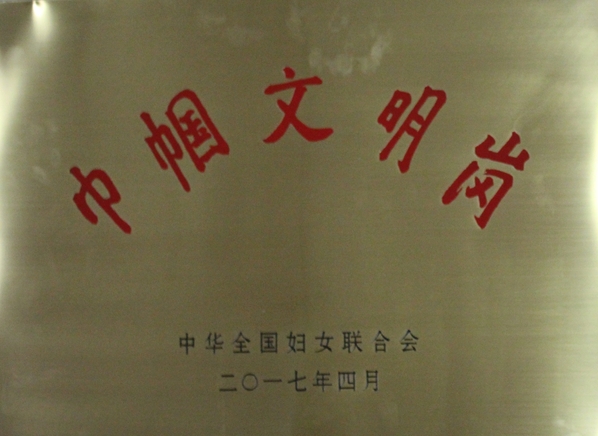 巾帼文明岗
中华全国妇女联合会
二〇一七年四月